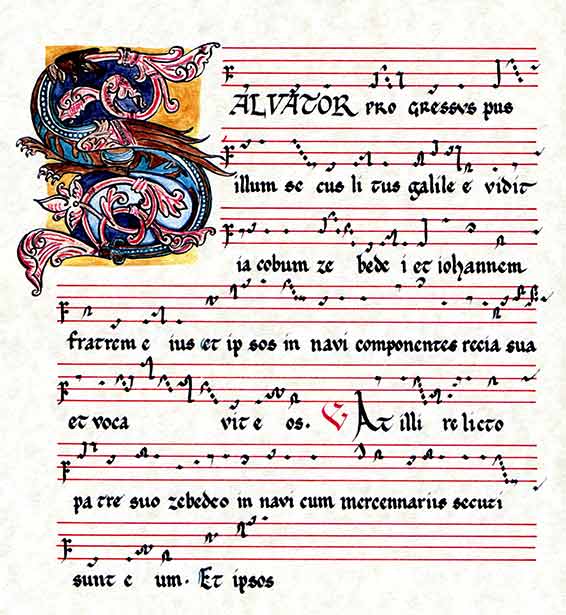 SALVATOR PRO GRESSVS pus
illum se cus li tus galile e vidit
ia cobum ze bede i et iohannem
fratrem e ius et ip sos in navi componentes recia sua
et voca vit e os. V At illi re licto
pa tre suo zebedeo in navi cum mercennariis secuti
sunt e um. Et ipsos